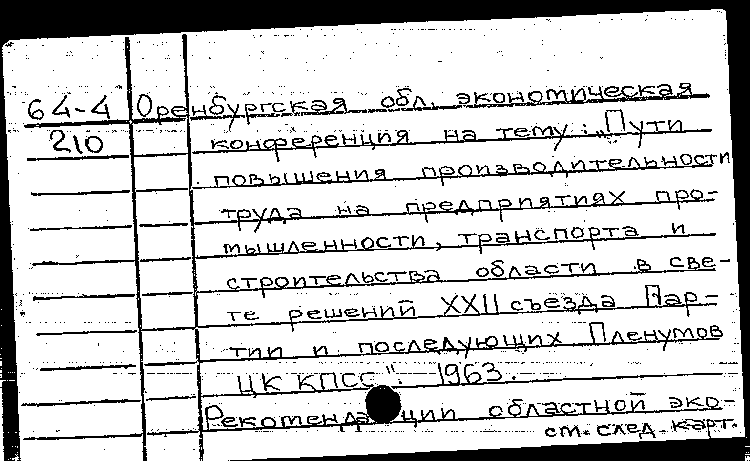 64-4 Оренбургская обл. экономическая
210 конференция на тему: „Пути
повышения производительности
труда на предприятиях про-
мышленности, транспорта и
строительства области в све-
те решений XXII съезда Пар-
тии и последующих Пленумов
ЦК КПСС". 1963.
Рекомендации областной эко-
см. след. карт.